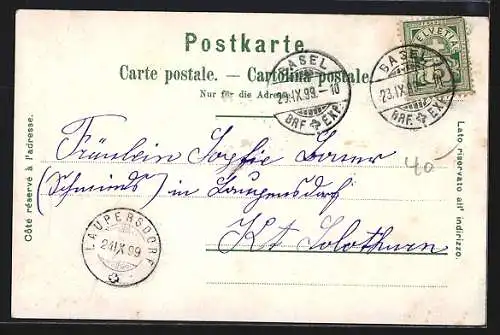 Postkarte.
Carte postale. — Cartolina postale.
Nur für die Adresse.
HELVETIA
BASEL
23.IX.99.-10
BRF. EXP.
BASEL
23.IX.99.-10
BRF. EXP.
Côté réservé à l'adresse.
Lato riservato all' indirizzo.
Fräulein Sophie
(Schmieds) in
Kt Solothurn
40
LAUPERSDORF
24.IX.99